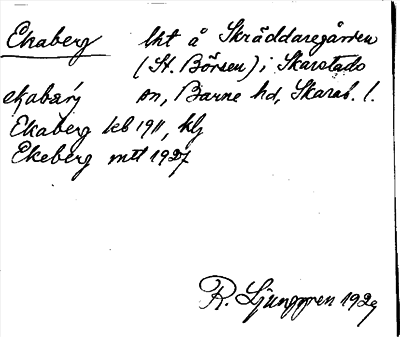 Ekaberg lht å Skräddaregården
(St. Börsen) i Skarstads
ekabærj sn, Barne hd, Skarab. l.
Ekaberg leb 1911, klj
Ekeberg mtl 1927
R. Ljunggren 1929